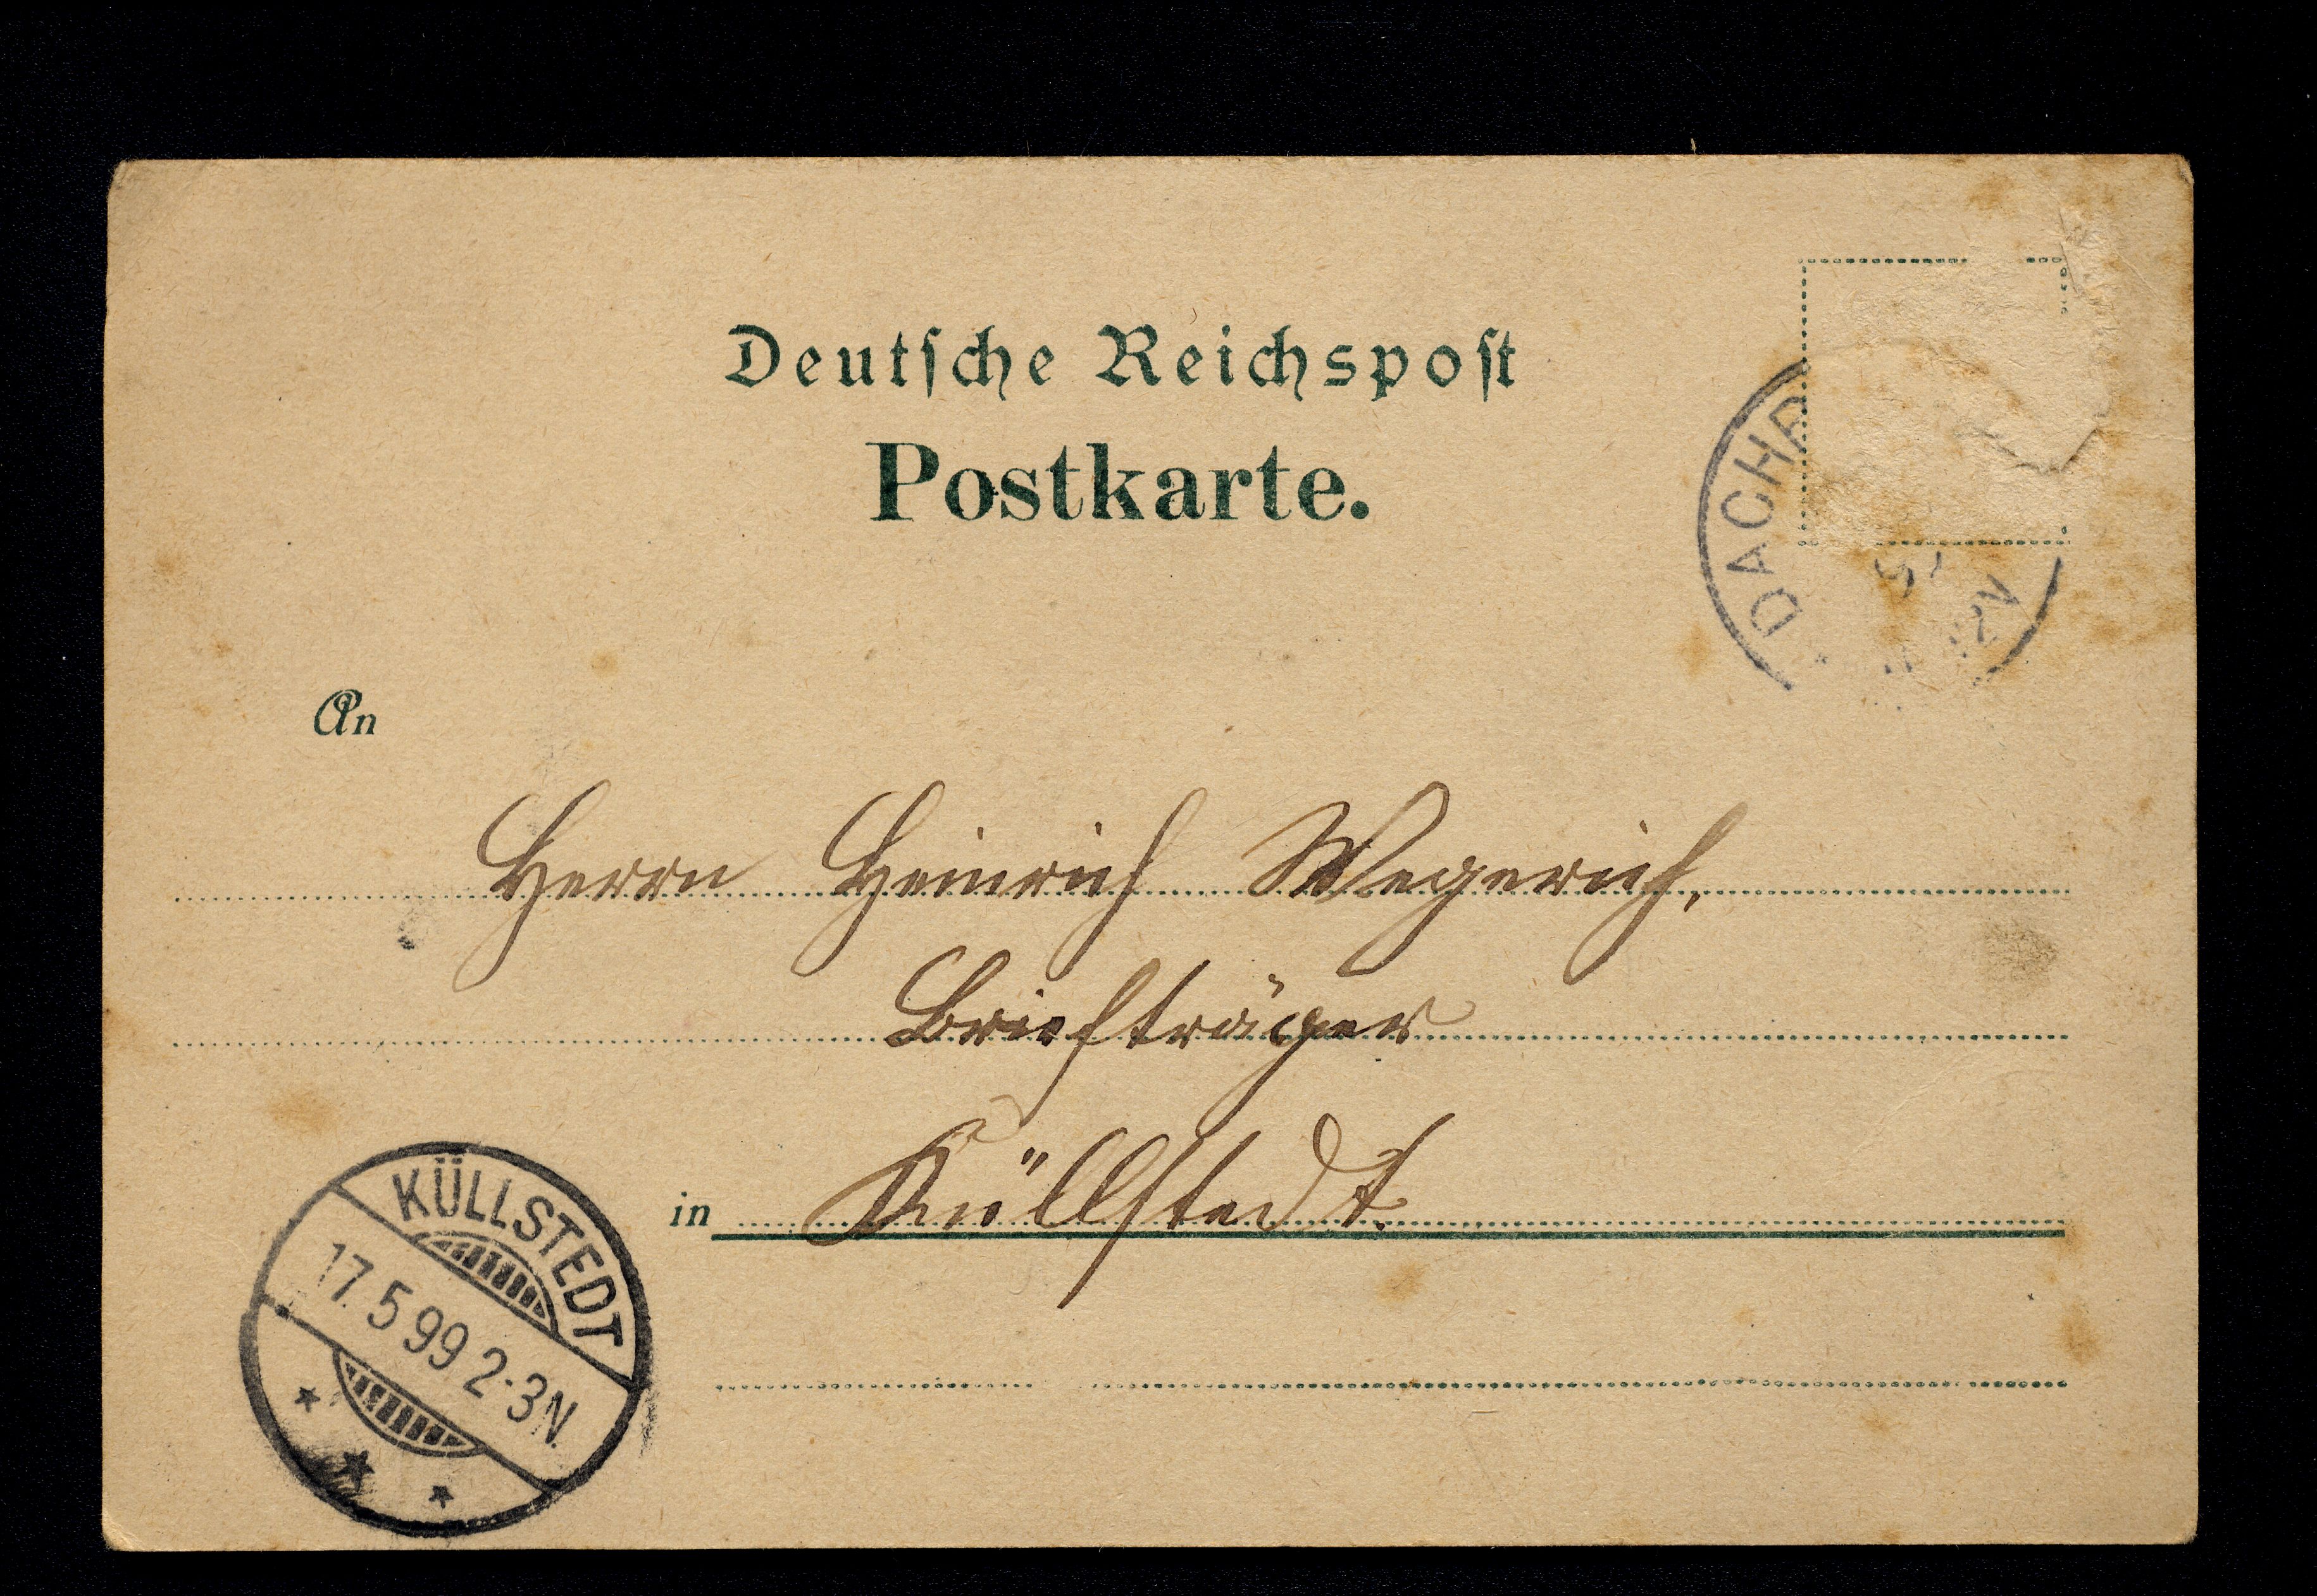 Deutsche Reichspost
Postkarte.
DACHR
An
Herrn Heinrich Wegerich,
Briefträger
in Küllstedt.
KÜLLSTEDT
17.5 99 2-3N.